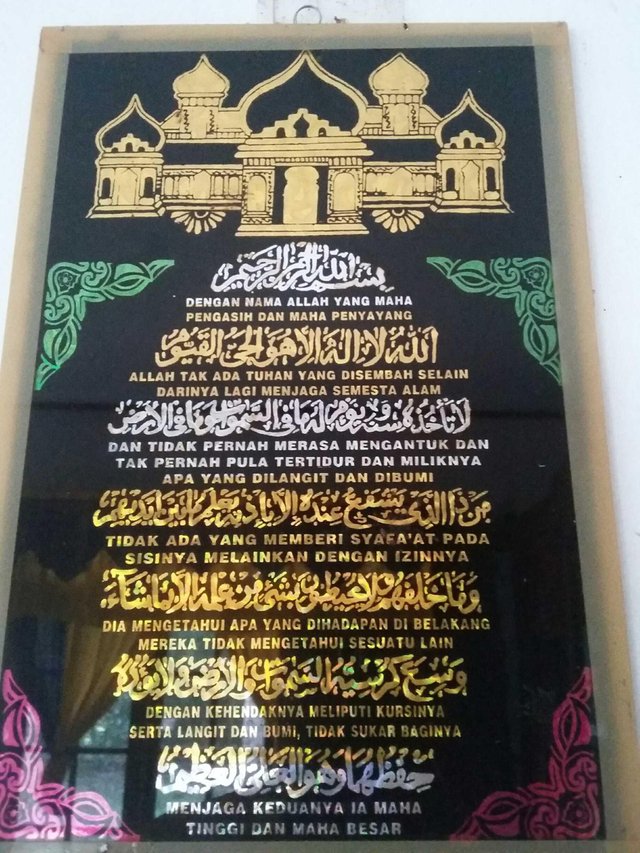 بسم الله الرحمن الرحيم
DENGAN NAMA ALLAH YANG MAHA
PENGASIH DAN MAHA PENYAYANG
الله لا اله الا هو الحي القيوم
ALLAH TAK ADA TUHAN YANG DISEMBAH SELAIN
DARINYA LAGI MENJAGA SEMESTA ALAM
لا تأخذه سنة ولا نوم له ما في السموات وما في الأرض
DAN TIDAK PERNAH MERASA MENGANTUK DAN
TAK PERNAH PULA TERTIDUR DAN MILIKNYA
APA YANG DILANGIT DAN DIBUMI
من ذا الذي يشفع عنده الا باذنه يعلم ما بين ايديهم
TIDAK ADA YANG MEMBERI SYAFA'AT PADA
SISINYA MELAINKAN DENGAN IZINNYA
وما خلفهم ولا يحيطون بشيء من علمه الا بما شاء
DIA MENGETAHUI APA YANG DIHADAPAN DI BELAKANG
MEREKA TIDAK MENGETAHUI SESUATU LAIN
وسع كرسيه السموات والارض ولا يؤده
DENGAN KEHENDAKNYA MELIPUTI KURSINYA
SERTA LANGIT DAN BUMI, TIDAK SUKAR BAGINYA
حفظهما وهو العلي العظيم
MENJAGA KEDUANYA IA MAHA
TINGGI DAN MAHA BESAR